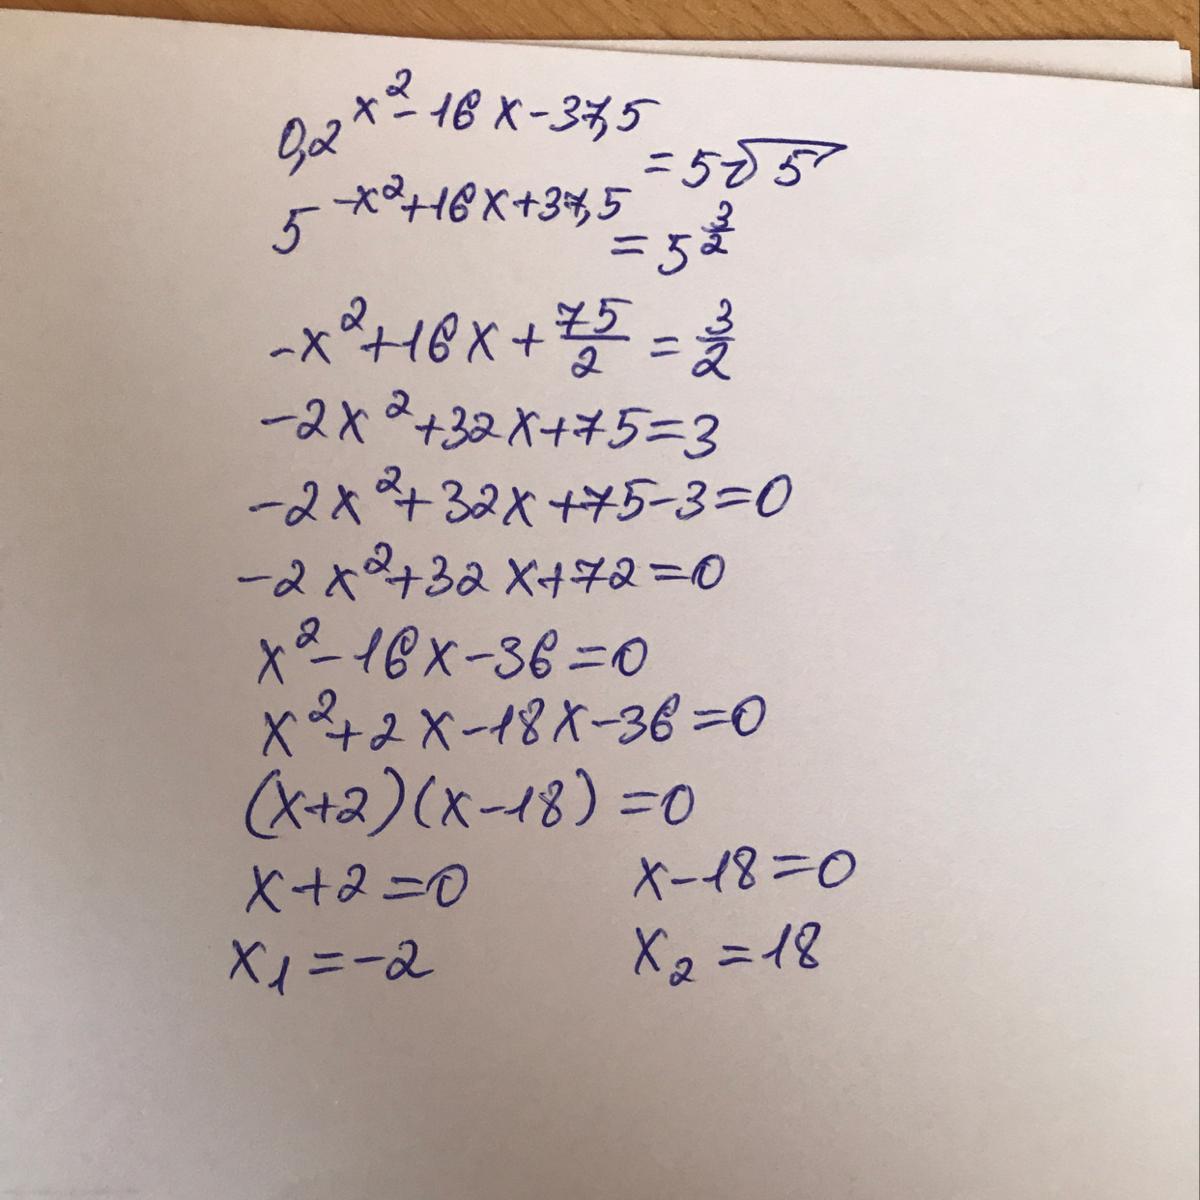 0,2^{x^2-16x-37,5} = 5√5
5^{-x^2+16x+37,5} = 5^{3/2}
-x^2+16x+75/2=3/2
-2x^2+32x+75=3
-2x^2+32x+75-3=0
-2x^2+32x+72=0
x^2-16x-36=0
x^2+2x-18x-36=0
(x+2)(x-18)=0
x+2=0 x-18=0
x_1=-2 x_2=18